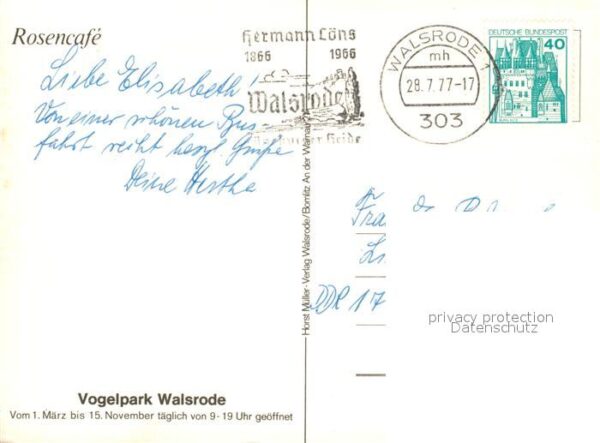 Rosencafé
Hermann Löns
1866 1966
Walsrode
Heide
WALSRODE 1
mh
28.7.77-17
303
DEUTSCHE BUNDESPOST
40
Liebe Elisabeth!
Von einer schönen Bus-
fahrt recht herzl. Grüße
Deine Hertha
Horst Müller-Verlag Walsrode/Bomlitz An der Warnau
Fra
DDR 17
privacy protection
Datenschutz
Vogelpark Walsrode
Vom 1. März bis 15. November täglich von 9-19 Uhr geöffnet